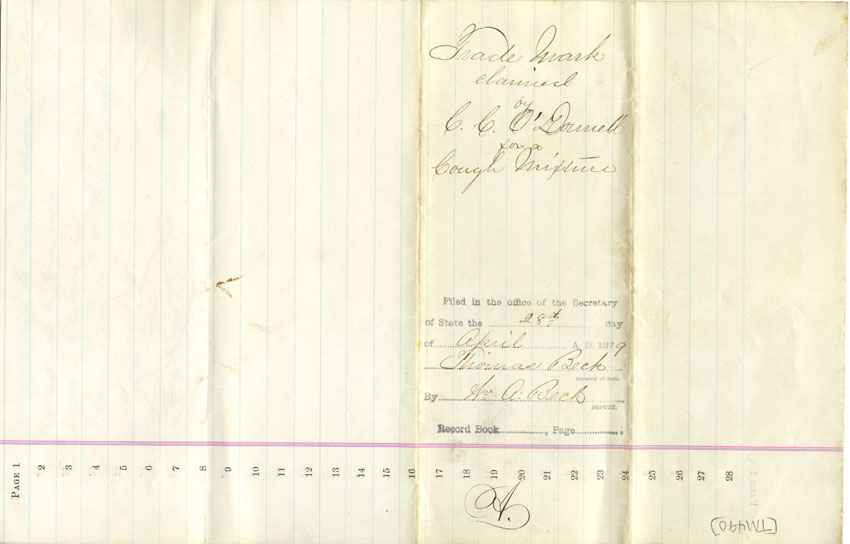 Trade Mark
claimed
by
C. C. O'Donnell
for a
Cough Mixture
Filed in the office of the Secretary
of State the 28th day
of April A. D. 1879
Thomas Beck
Secretary of State.
By Wm A. Beck
DEPUTY.
Record Book , Page .
PAGE 1 2 3 4 5 6 7 8 9 10 11 12 13 14 15 16 17 18 19 20 21 22 23 24 25 26 27 28
A.
PAGE 1
[TM490]